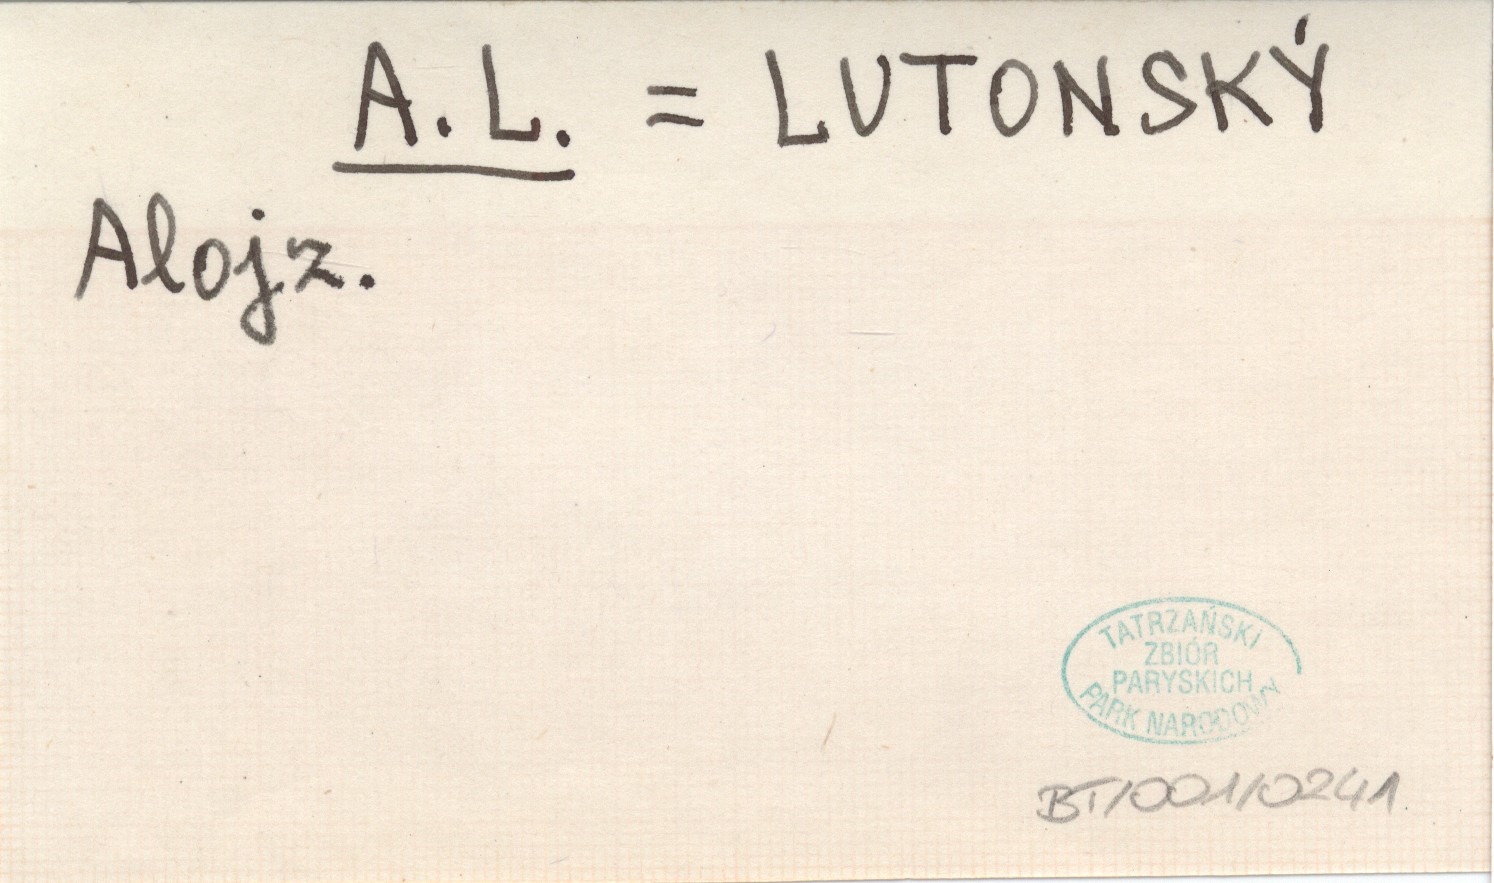 A.L. = LUTONSKÝ
Alojz.
TATRZAŃSKI
ZBIÓR
PARYSKICH
PARK NARODOWY
BT/001/0241